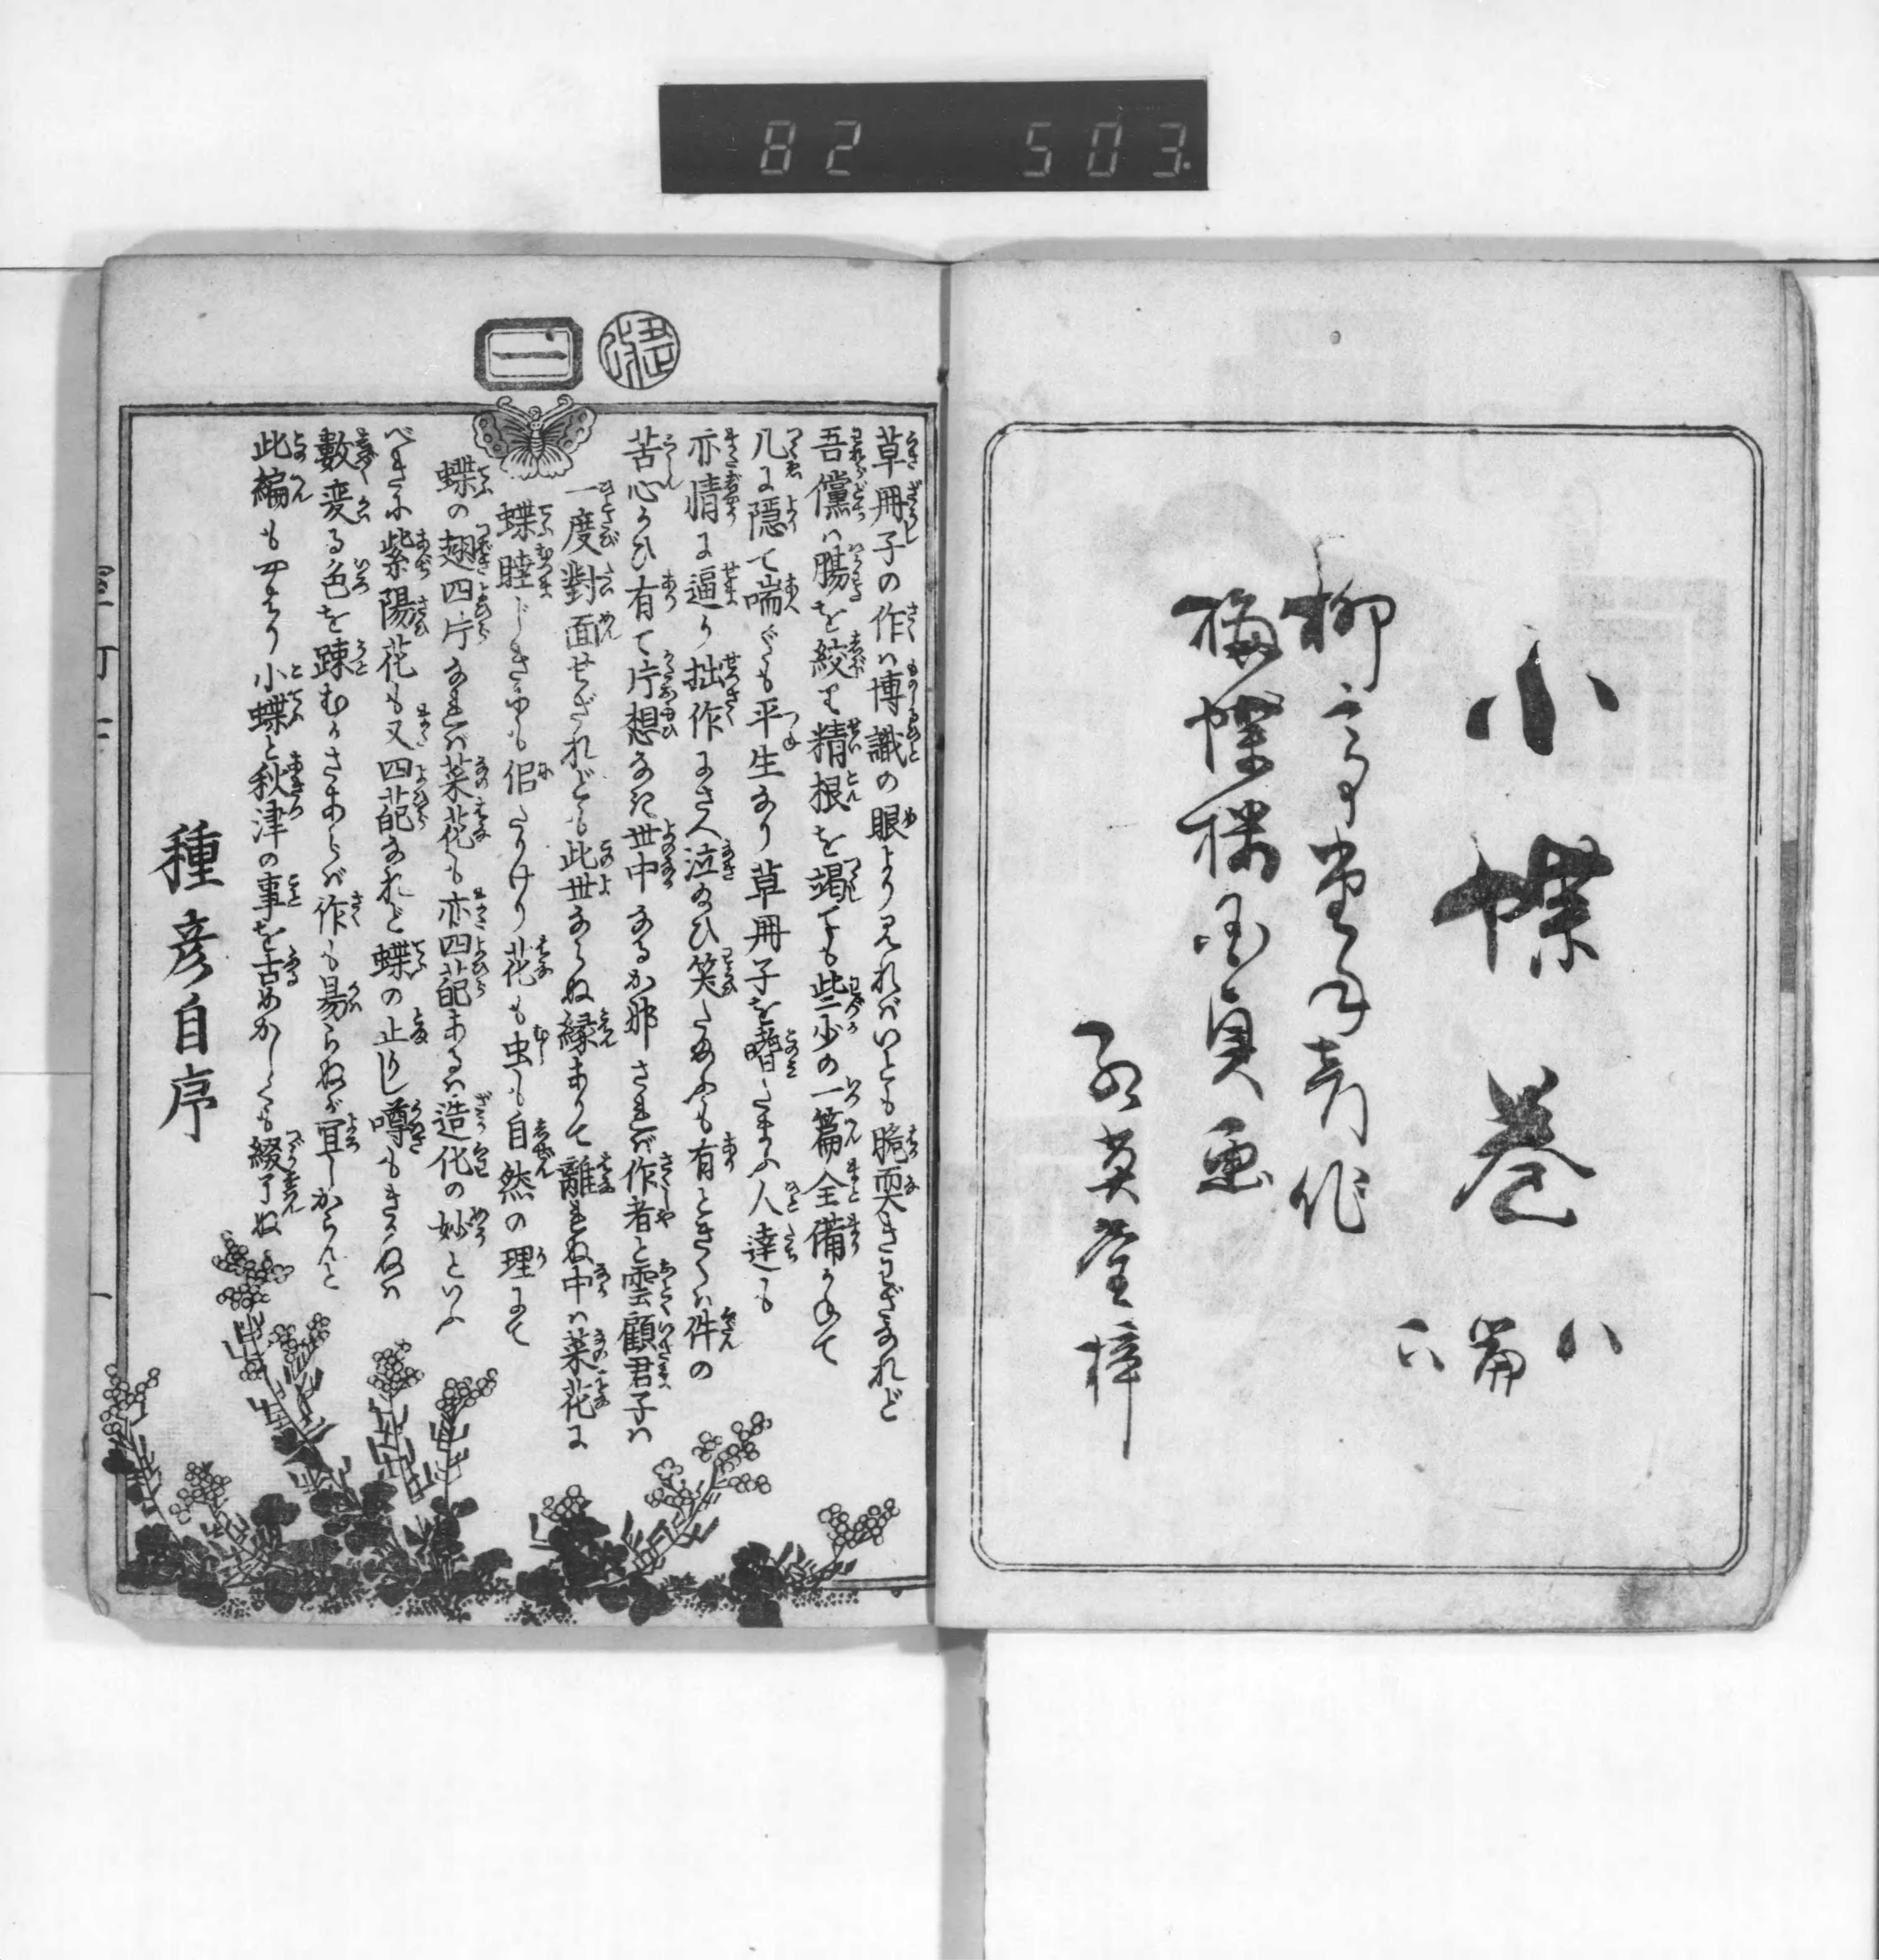 82 503.
小蝶巻 八篇 下
柳亭種彦作
梅蝶楼国貞画
紅英堂梓
一
草冊子の作ハ博識の眼より見ればいとも脆耎きわざなれど
吾儻ハ腸を絞り精根を竭ても些少の一篇全備かねて
几に隠て喘ぐも平生なり草冊子を嗜たまふ人達も
亦情に逼り拙作にさへ泣給ひ笑たまふも有ときくハ件の
苦心かひ有て片想なき世中なるか那されバ作者と雲顧君子ハ
一度對面せざれども此世ならぬ縁ありて離れぬ中ハ菜花に
蝶睦じき中も侶たりけり花も虫も自然の理にて
蝶の翅四片なれバ菜花も亦四葩あるハ造化の妙といふ
べきに紫陽花も又四葩なれど蝶の止りし噂もきかぬハ
數変る色を踈むかさあらバ作も易らぬが宜しからんと
此編も四たり小蝶と秋津の事を古めかしくも綴了ぬ
種彦自序